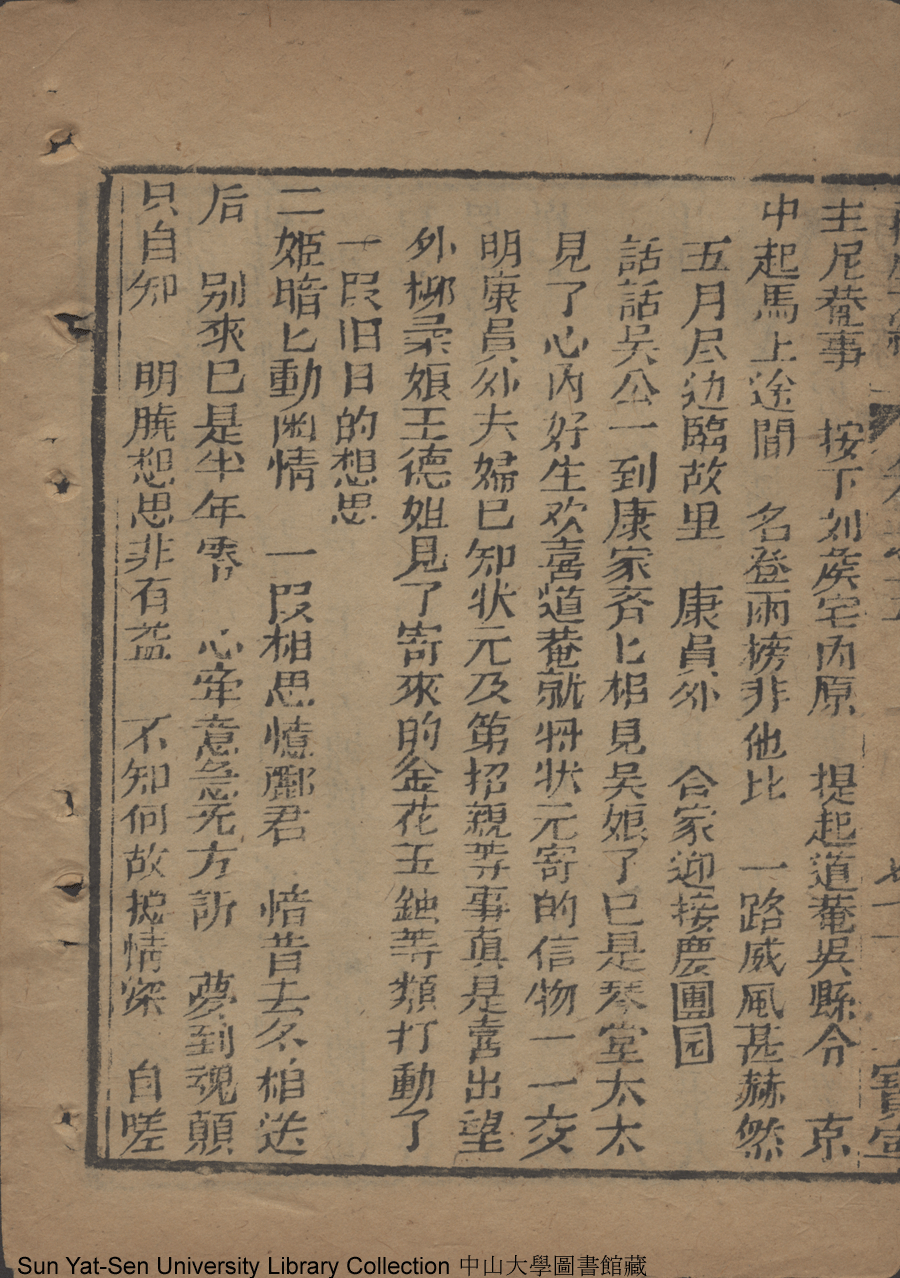 主尼菴事　按下刘矦宅内原　提起道菴吳縣令　京
中起馬上途間　名登兩榜非他比　一路威風甚赫然
五月尽边臨故里　康員外　合家迎接慶團园
話話吴公一到康家斉匕相見吴娘了已是琴堂太太
見了心内好生欢喜道菴就将状元寄的信物一一交
明康員外夫婦已知状元及第招親等事真是喜出望
外柳柔娘王德姐見了寄來的金花玉鈿等類打動了
一叚旧日的想思
二姬暗匕動幽情　一叚相思憶酈君　惜昔去冬相送
后　别來已是半年零　心牽意急无方訴　夢到魂顛
只自知　明曉想思非有益　不知何故摠情深　自嗟
寳
Sun Yat-Sen University Library Collection 中山大學圖書館藏